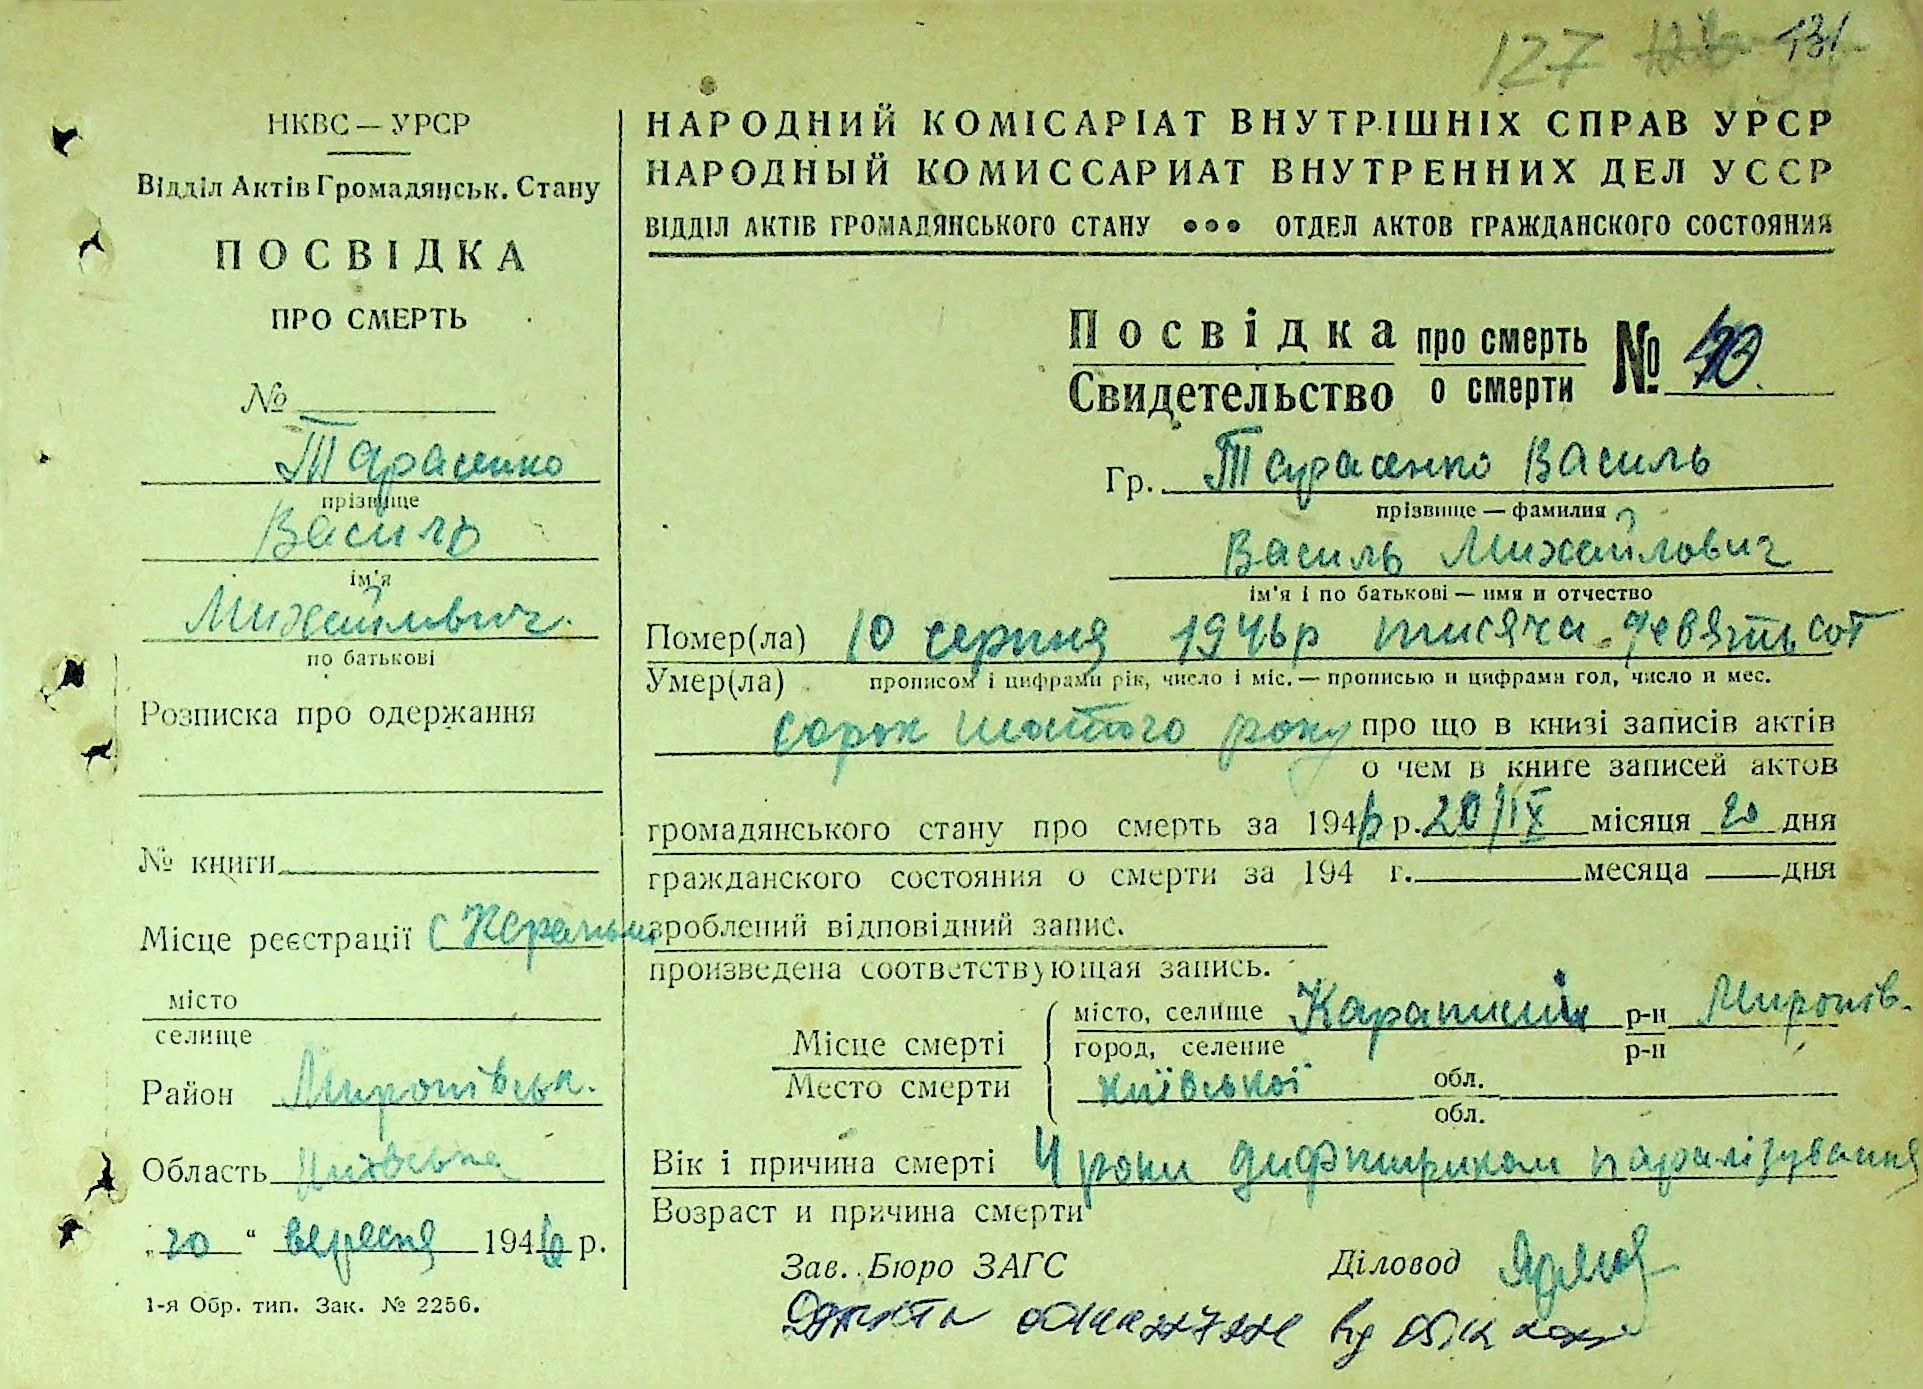 127 131
НКВС — УРСР
Відділ Актів Громадянськ. Стану
ПОСВІДКА
ПРО СМЕРТЬ
№
Тарасенко
прізвище
Василь
ім'я
Михайлович.
по батькові
Розписка про одержання
№ книги
Місце реєстрації с
місто
селище
Район Миронівськ.
Область Київська
„20“ вересня 1946 р.
1-я Обр. тип. Зак. № 2256.
НАРОДНИЙ КОМІСАРІАТ ВНУТРІШНІХ СПРАВ УРСР
НАРОДНЫЙ КОМИССАРИАТ ВНУТРЕННИХ ДЕЛ УССР
ВІДДІЛ АКТІВ ГРОМАДЯНСЬКОГО СТАНУ ••• ОТДЕЛ АКТОВ ГРАЖДАНСКОГО СОСТОЯНИЯ
Посвідка про смерть №
Свидетельство о смерти
Гр. Тарасенко Василь
прізвище — фамилия
Василь Михайлович
ім'я і по батькові — имя и отчество
Помер(ла) 10 серпня 1946р тисяча девятьсот
Умер(ла) прописом і цифрами рік, число і міс. — прописью и цифрами год, число и мес.
сорок шостого року про що в книзі записів актів
о чем в книге записей актов
громадянського стану про смерть за 1946 р. 20/IX місяця 20 дня
гражданского состояния о смерти за 194 г. месяца дня
зроблений відповідний запис.
произведена соответствующая запись.
Місце смерті місто, селище Карапиши р-н Миронів.
Место смерти город, селение р-н
київської обл.
обл.
Вік і причина смерті 4 роки паралізування
Возраст и причина смерти
Зав. Бюро ЗАГС Діловод